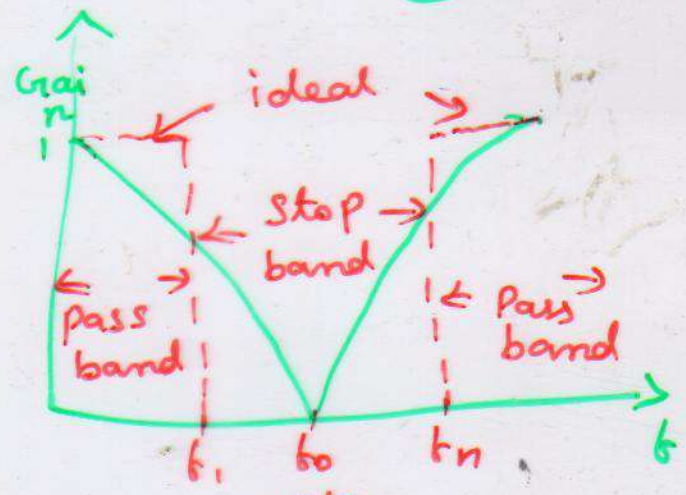 Gain
ideal
1
stop
band
pass
band
Pass
band
f1
f0
fn
f